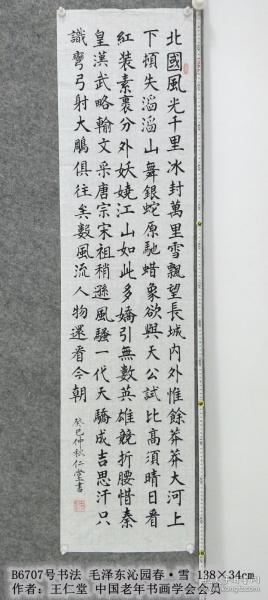 北國風光千里冰封萬里雪飄望長城内外惟餘莽莽大河上
下頓失滔滔山舞銀蛇原馳蜡象欲與天公試比高須晴日看
紅装素裹分外妖嬈江山如此多嬌引無數英雄競折腰惜秦
皇漢武略輸文采唐宗宋祖稍遜風騷一代天驕成吉思汗只
識彎弓射大鵰俱往矣數風流人物還看今朝
癸巳仲秋仁堂書
B6707号书法 毛泽东沁园春·雪 138×34cm
作者：王仁堂 中国老年书画学会会员